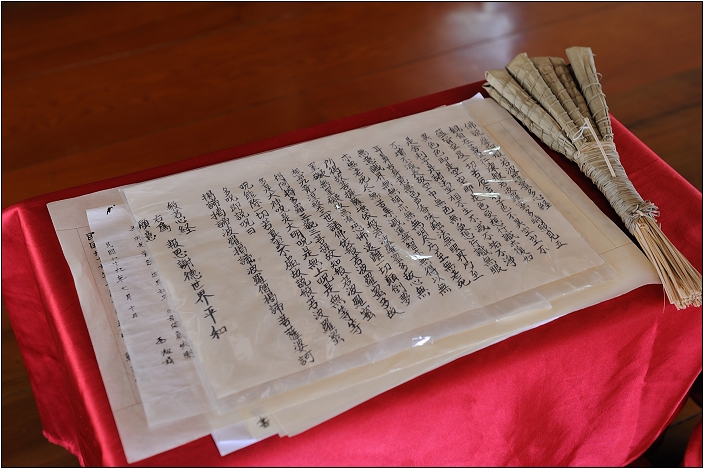 佛説摩訶般若波羅蜜多心経
観自在菩薩行深般若波羅蜜多時照見五
蘊皆空度一切苦厄舎利子色不異空空不
異色色即是空空即是色受想行識亦復如
是舎利子是諸法空相不生不滅不垢不浄
不増不減是故空中無色無受想行識無眼
耳鼻舌身意無色声香味触法無眼界乃至
無意識界無無明亦無無明尽乃至無老死
亦無老死尽無苦集滅道無智亦無得以無
所得故菩提薩埵依般若波羅蜜多故心無
罣礙無罣礙故無有恐怖遠離一切顛倒夢
想究竟涅槃三世諸仏依般若波羅蜜多故
得阿耨多羅三藐三菩提故知般若波羅蜜
多是大神呪是大明呪是無上呪是無等等
呪能除一切苦真実不虚故説般若波羅蜜
多呪即説呪曰
羯諦羯諦波羅羯諦波羅僧羯諦菩提薩婆訶
般若心経
右為 報恩謝徳世界平和
願意